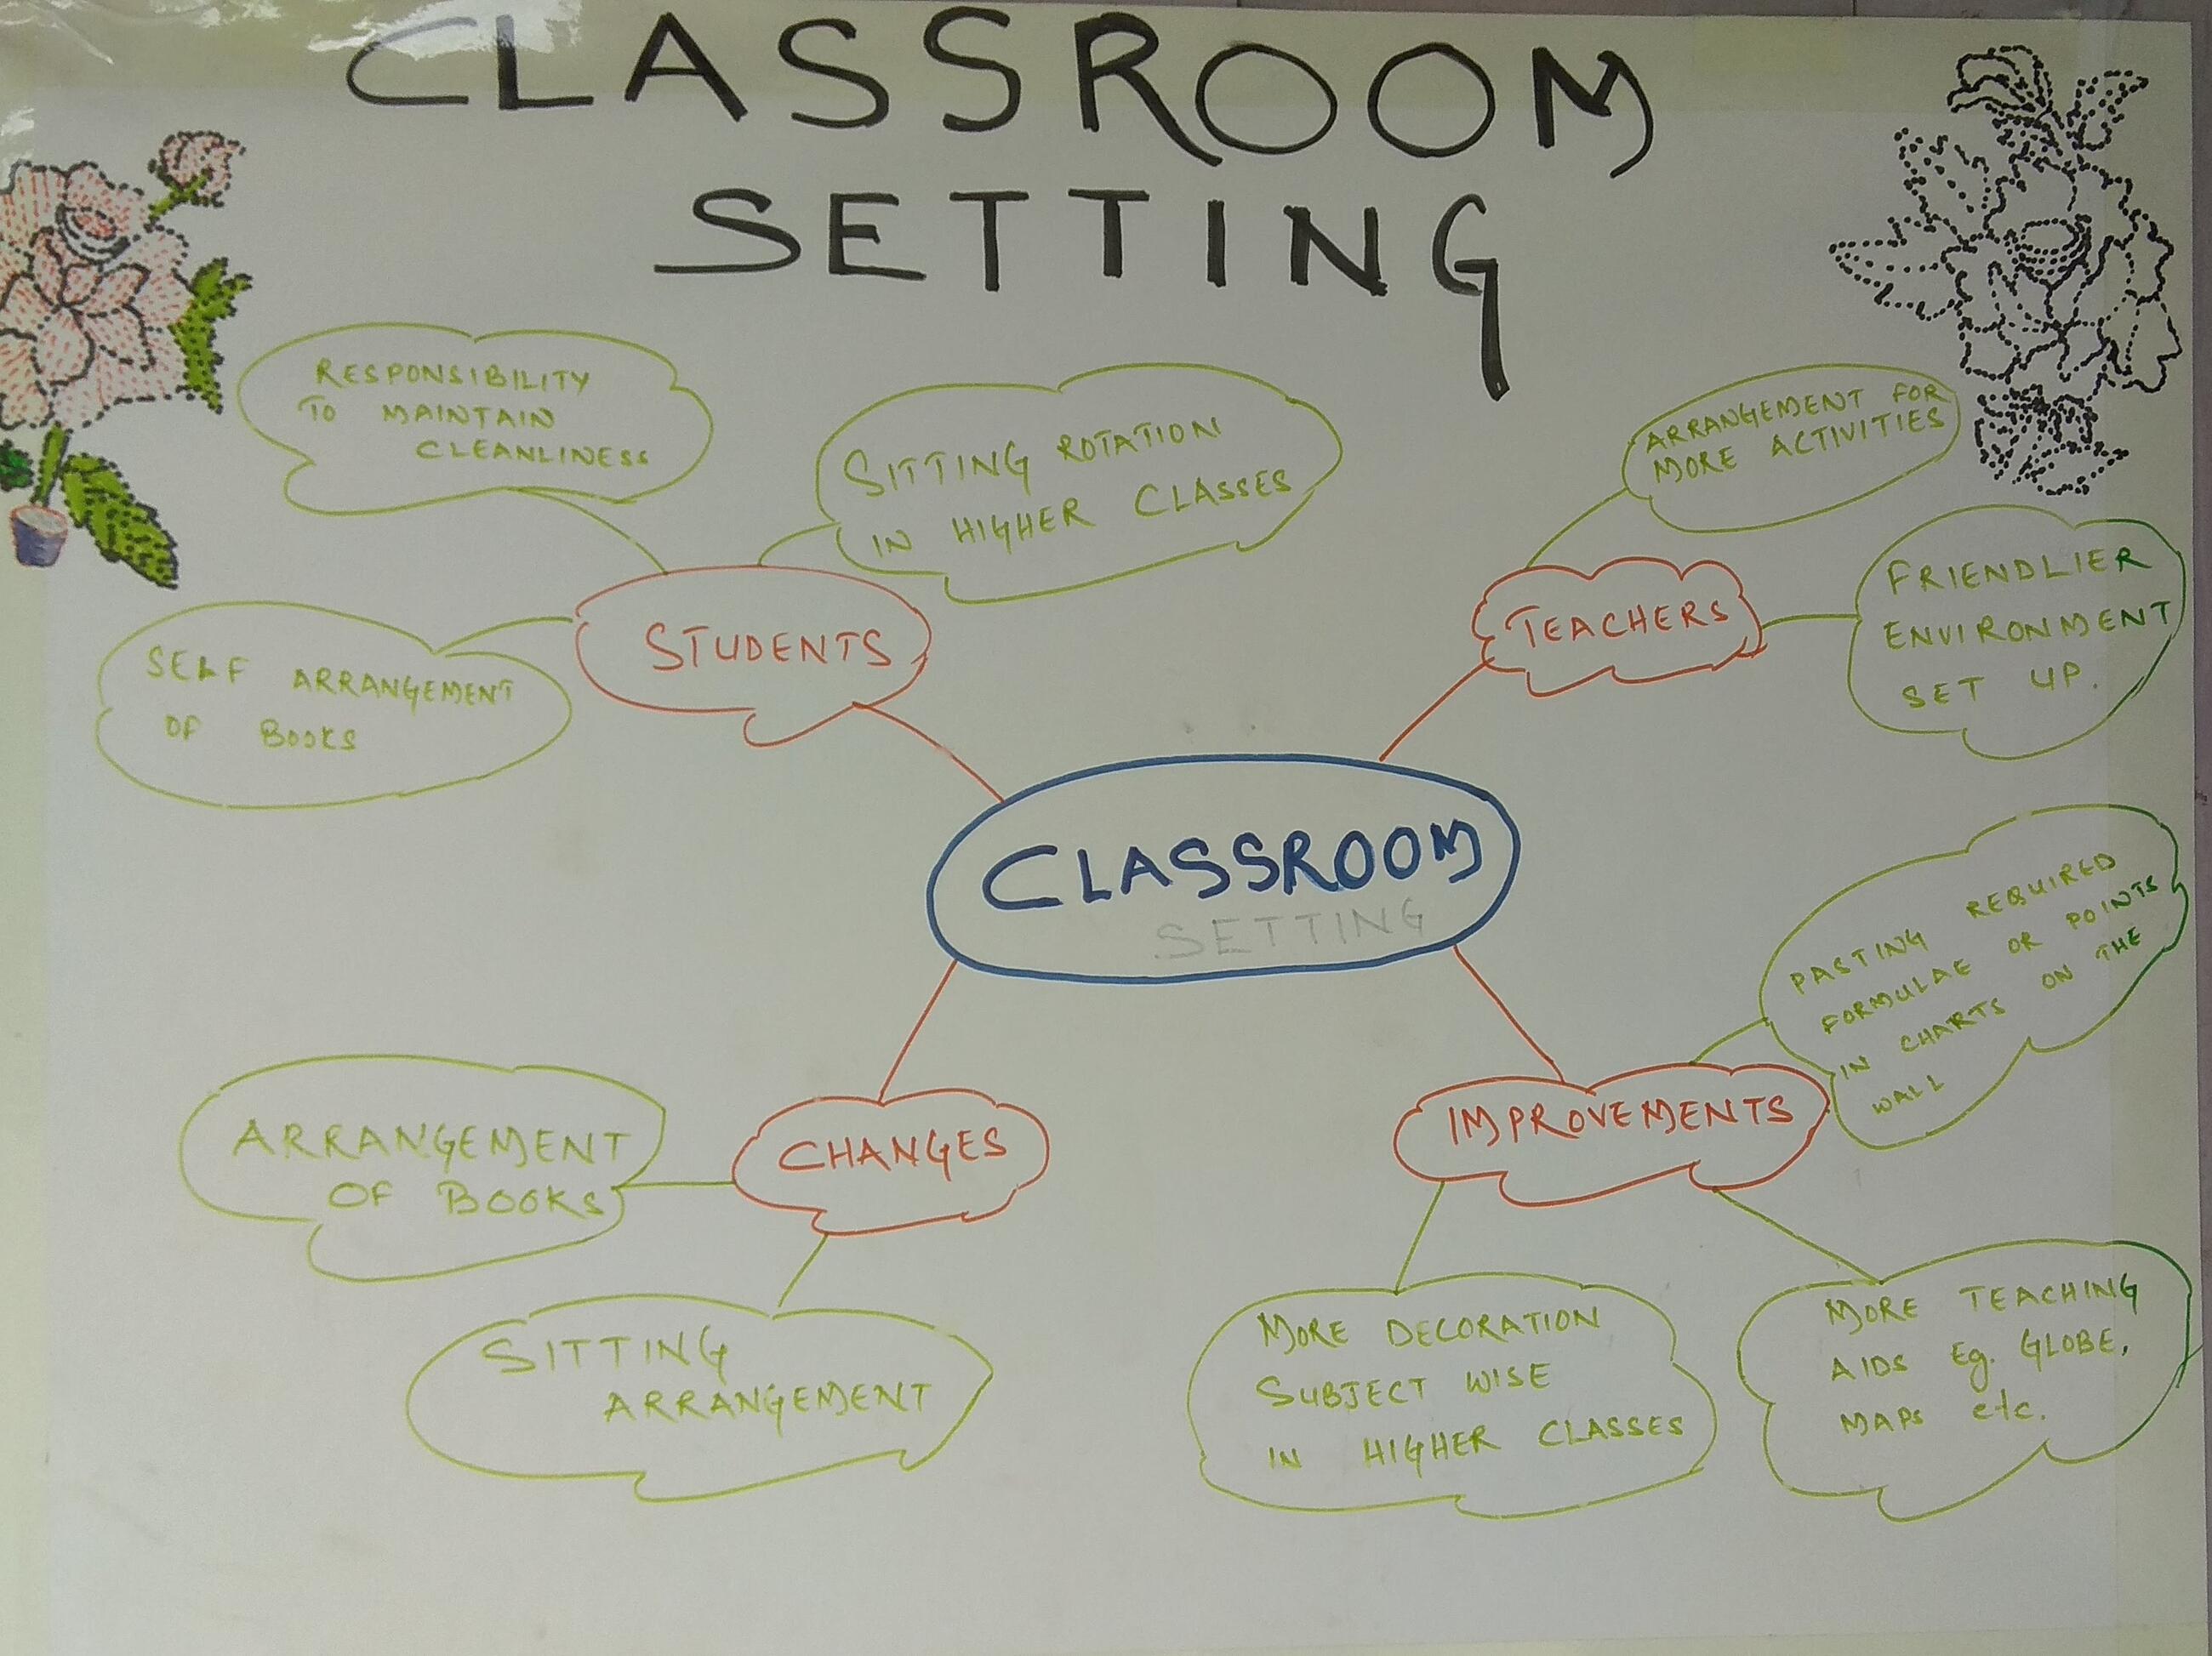 CLASSROOM
SETTING
RESPONSIBILITY
TO MAINTAIN
CLEANLINESS
SITTING ROTATION
IN HIGHER CLASSES
SELF ARRANGEMENT
OF BOOKS
STUDENTS
ARRANGEMENT FOR
MORE ACTIVITIES
TEACHERS
FRIENDLIER
ENVIRONMENT
SET UP.
CLASSROOM
SETTING
ARRANGEMENT
OF BOOKS
CHANGES
SITTING
ARRANGEMENT
IMPROVEMENTS
PASTING REQUIRED
FORMULAE OR POINTS
IN CHARTS ON THE
WALL
MORE DECORATION
SUBJECT WISE
IN HIGHER CLASSES
MORE TEACHING
AIDS Eg. GLOBE,
MAPS etc.